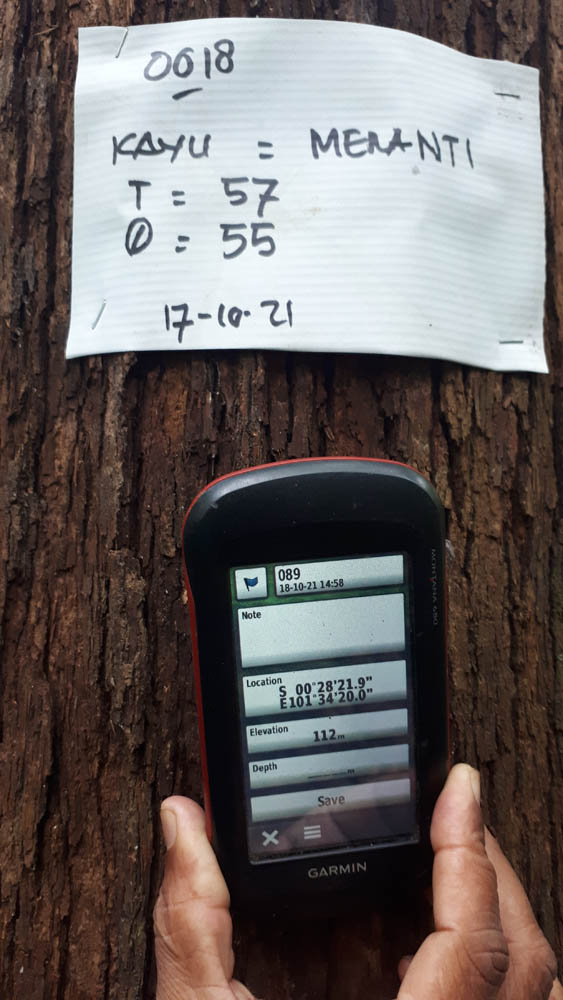 0018
KAYU = MERANTI
T = 57
Ø = 55
17-10-21
089
18-10-21 14:58
Note
Location
S 00°28'21.9"
E101°34'20.0"
Elevation
112m
Depth
_____m
Save
GARMIN
MONTANA 680